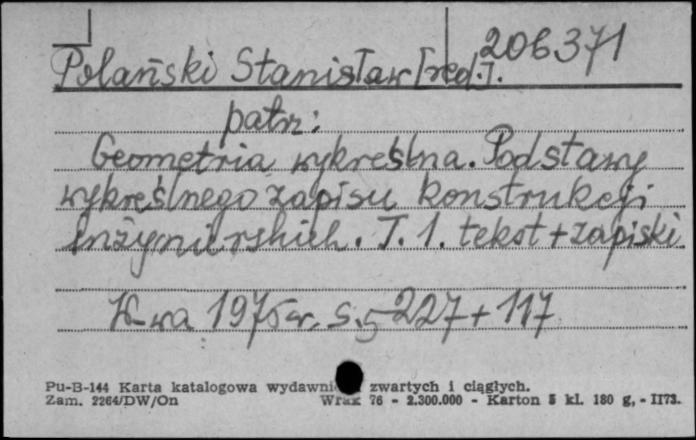 206371
Polański Stanisław [red.].
patrz:
Geometria wykreślna. Podstawy
wykreślnego zapisu konstrukcji
inżynierskich. T. 1. tekst + zapiski
K-wa 1975 r. S. 5-227 + 117
Pu-B-144 Karta katalogowa wydawni zwartych i ciągłych.
Zam. 2264/DW/On Wrak 76 - 2.300.000 - Karton 5 kl. 180 g, - II73.